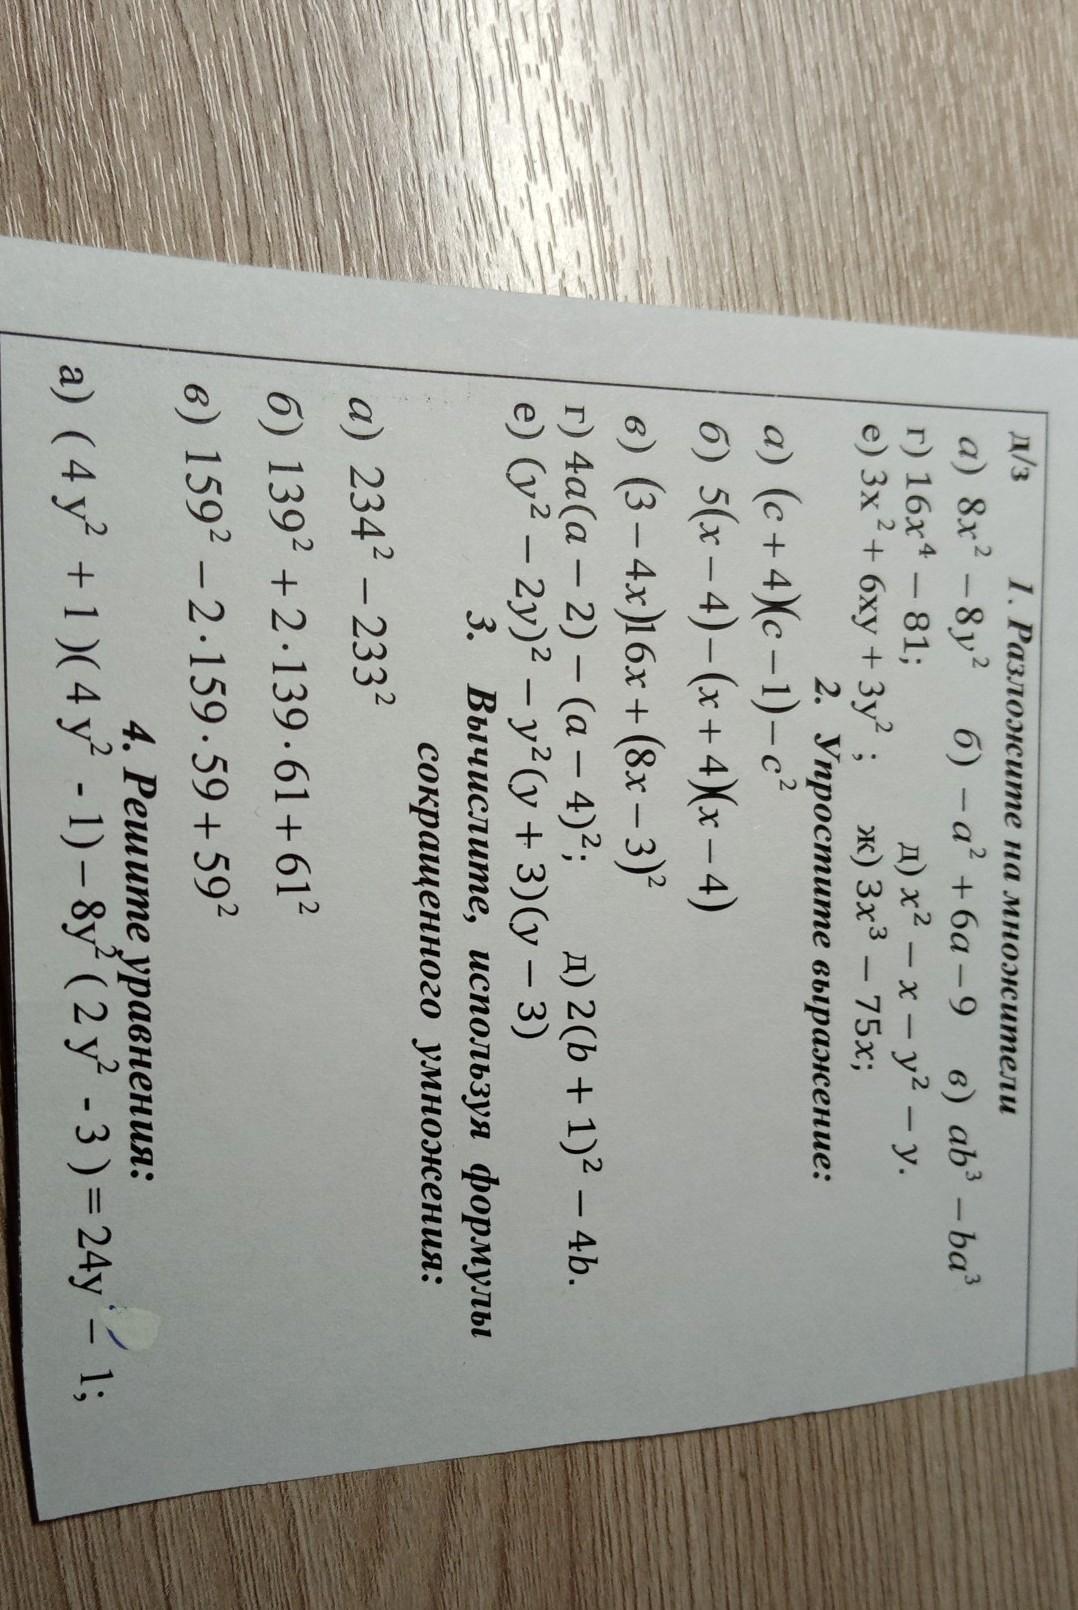 д/з 1. Разложите на множители
а) 8x² − 8y² б) − a² + 6a − 9 в) ab³ − ba³
г) 16x⁴ − 81; д) x² − x − y² − y.
е) 3x² + 6xy + 3y² ; ж) 3x³ − 75x;
2. Упростите выражение:
а) (c + 4)(c − 1) − c²
б) 5(x − 4) − (x + 4)(x − 4)
в) (3 − 4x)16x + (8x − 3)²
г) 4a(a − 2) − (a − 4)²; д) 2(b + 1)² − 4b.
е) (y² − 2y)² − y²(y + 3)(y − 3)
3. Вычислите, используя формулы
сокращенного умножения:
а) 234² − 233²
б) 139² + 2·139·61 + 61²
в) 159² − 2·159·59 + 59²
4. Решите уравнения:
а) ( 4 y² + 1 )( 4 y² - 1) – 8y² ( 2 y² - 3 ) = 24y – 1;